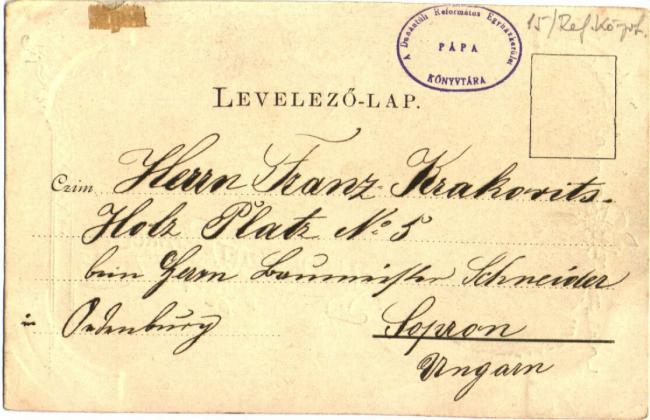 15/Ref. Közpt.
A Dunántúli Református Egyházkerület
PÁPA
KÖNYVTÁRA
LEVELEZŐ-LAP.
Czim Herrn Franz Krakovits.
Holz Platz No 5
beim Herrn Baumeister Schneider
in Oedenburg Sopron
Ungarn